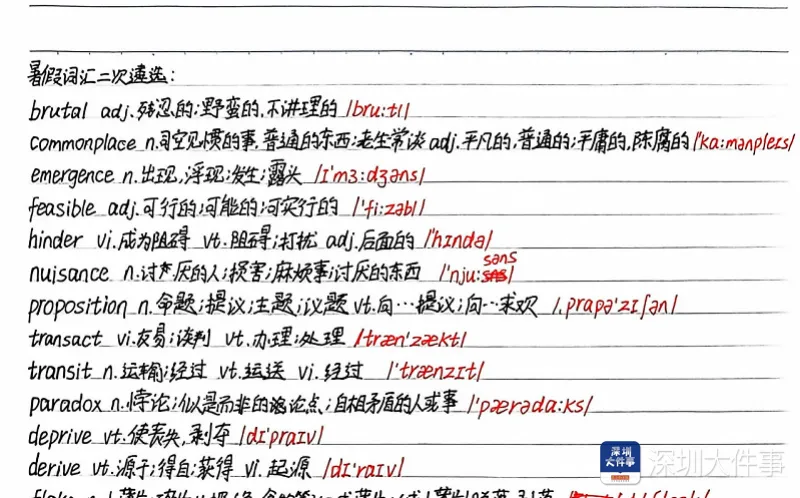 暑假词汇二次遴选:
brutal adj.残忍的;野蛮的,不讲理的 /bru:tl/
commonplace n.司空见惯的事,普通的东西;老生常谈 adj.平凡的,普通的;平庸的,陈腐的 /'ka:mənpleɪs/
emergence n.出现,浮现;发生;露头 /ɪ'mɜ:dʒəns/
feasible adj.可行的;可能的;可实行的 /'fi:zəbl/
hinder vi.成为阻碍 vt.阻碍;打扰 adj.后面的 /'hɪndə/
nuisance n.讨厌的人;损害;麻烦事;讨厌的东西 /'nju:səns/
proposition n.命题;提议;主题;议题 vt.向…提议;向…求欢 /,prɑpə'zɪʃən/
transact vi.交易;谈判 vt.办理;处理 /træn'zækt/
transit n.运输;经过 vt.运送 vi.经过 /'trænzɪt/
paradox n.悖论;似是而非的论点;自相矛盾的人或事 /'pærədɑ:ks/
deprive vt.使丧失,剥夺 /dɪ'praɪv/
derive vt.源于;得自;获得 vi.起源 /dɪ'raɪv/
深圳大件事
深圳大件事